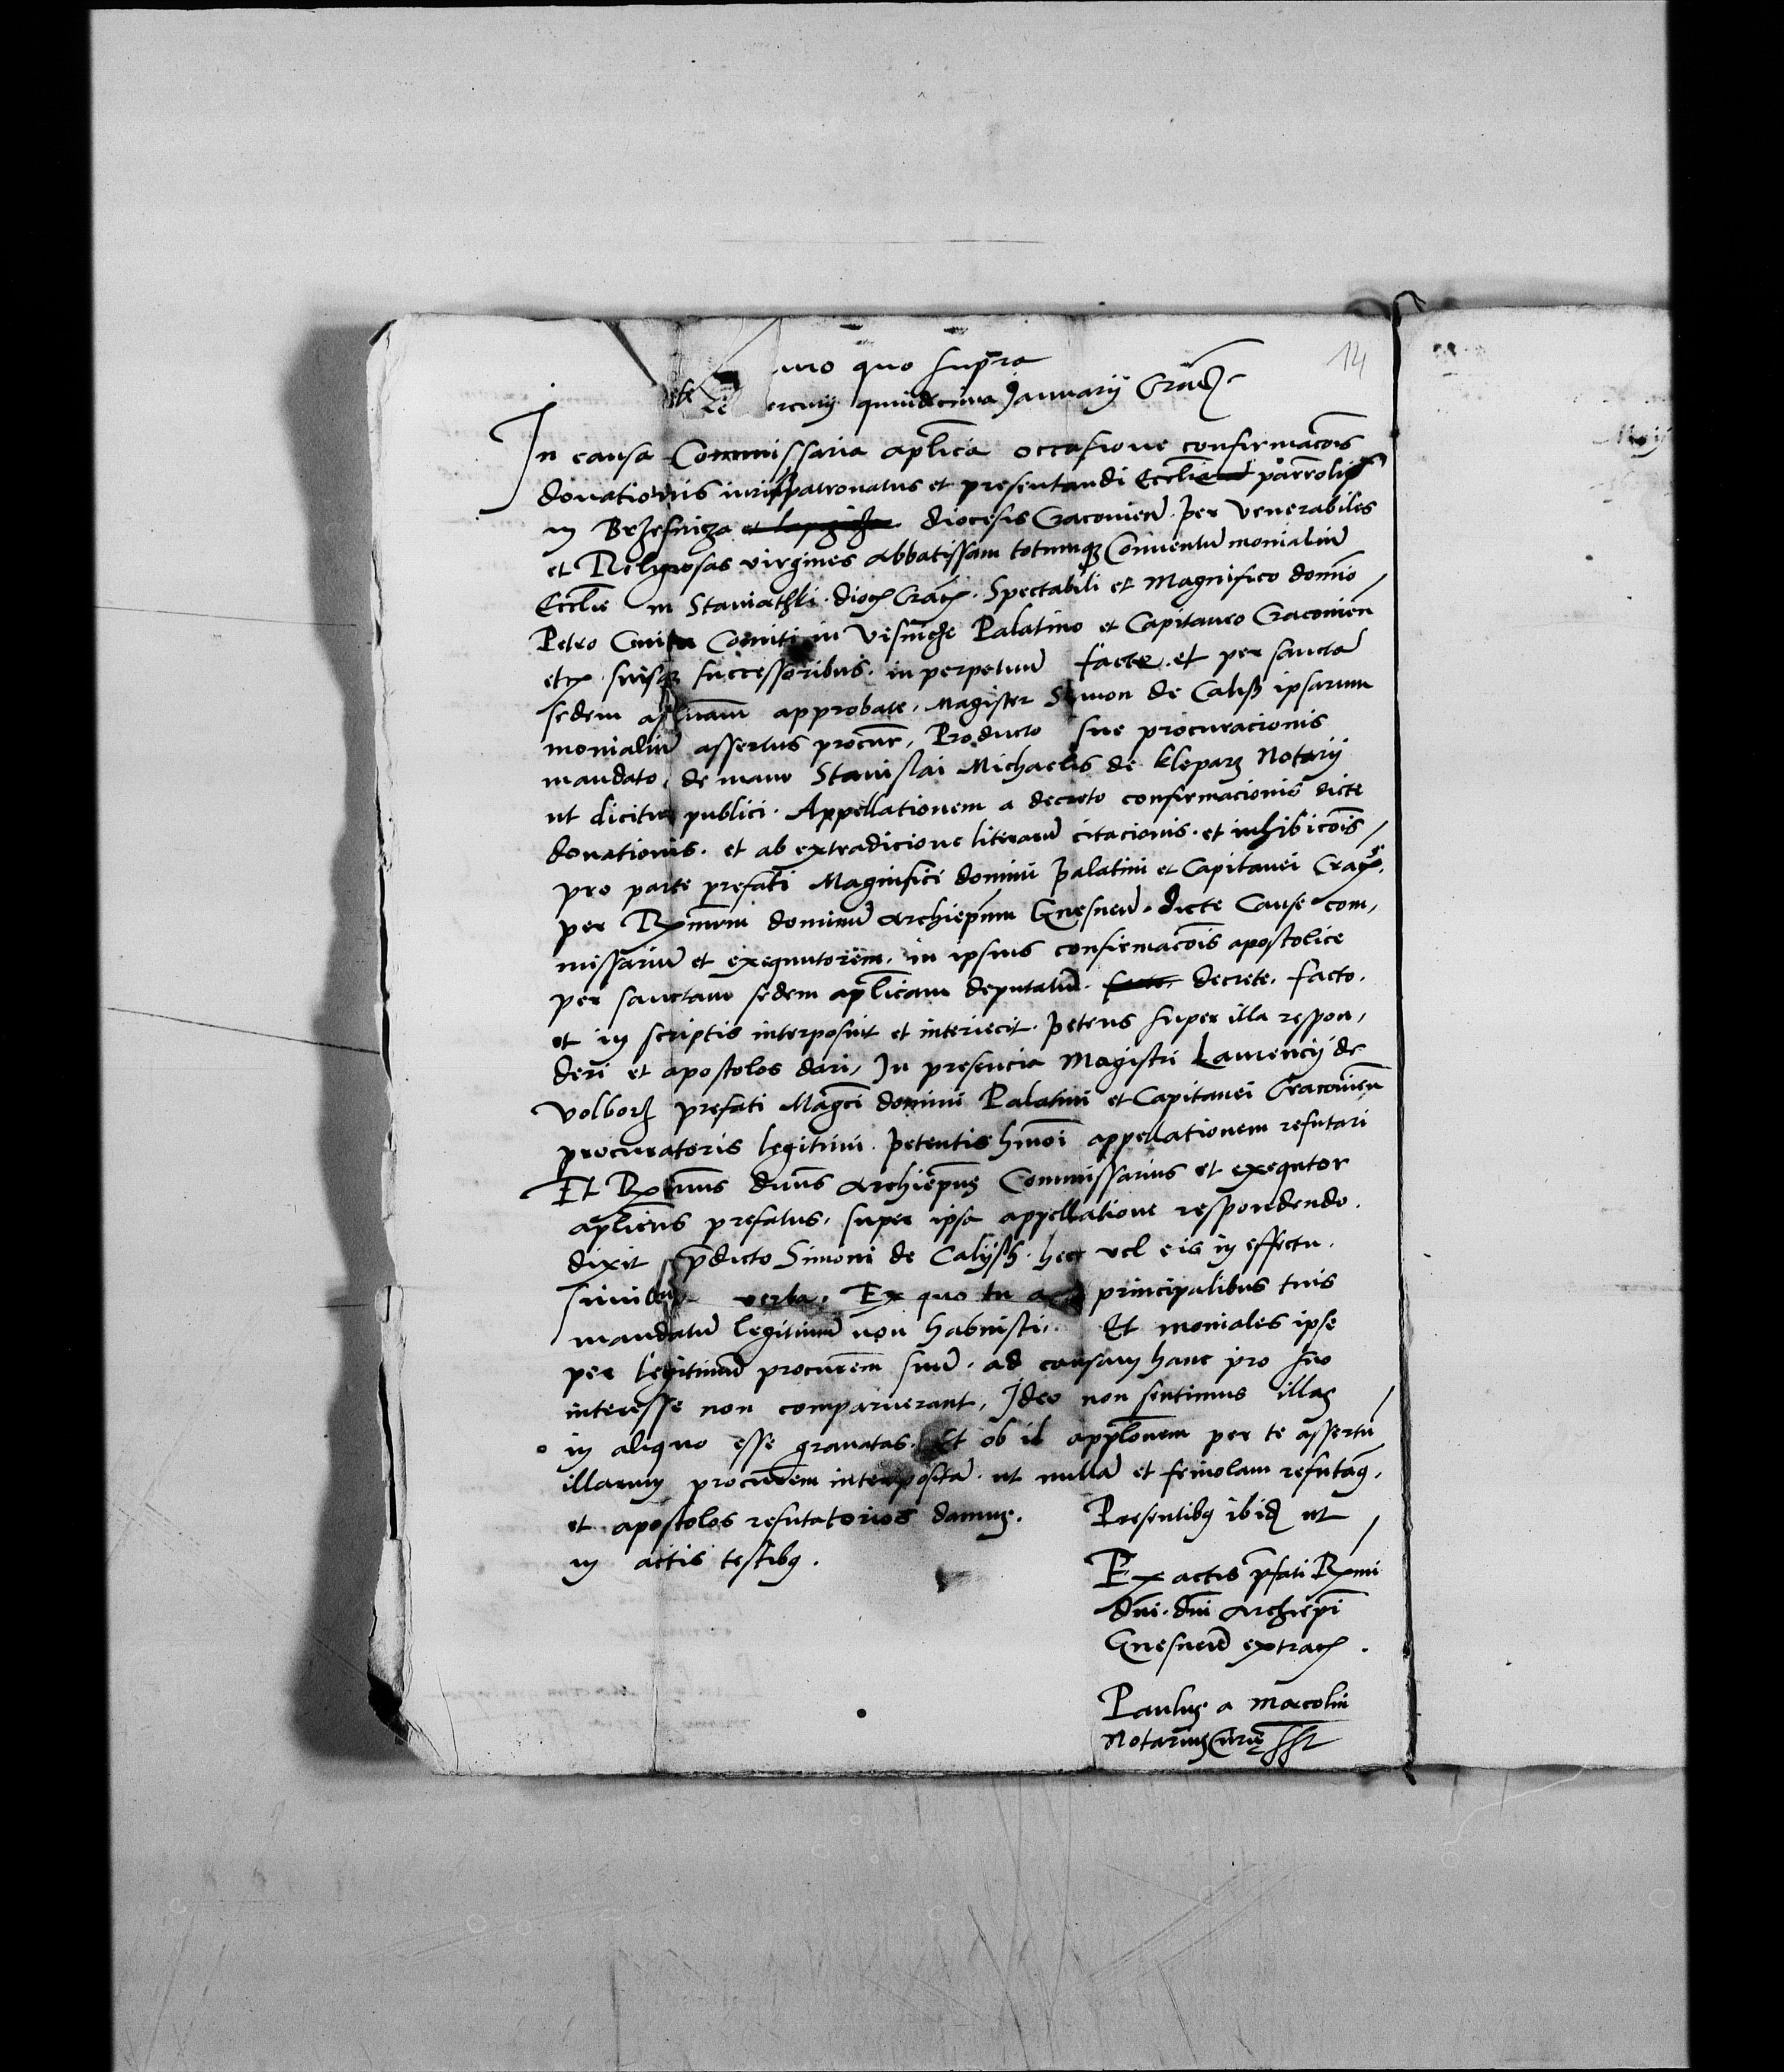 14
quo supra
quindecima Januarij Crac
In causa Commissaria aplica occasione confirmacois
donationis iurispatronatus et presentandi Ecclie parrolis
in Brzesnicza et lapczicza diocesis Cracovien per venerabiles
et Religiosas virgines abbatissam totumq Conventu monialiu
Ecclie in Staniathki dioc Crac. Spectabili et Magnifico domino
Petro Cmita Comiti in Visnicze Palatino et Capitaneo Cracovien
etc. suisq successoribus in perpetuum facte. et per sancta
sedem aplicam approbate, Magister Simon de Calish ipsarum
monialiu assertus procur, Producto sue procuracionis
mandato, de manu Stanislai Michaelis de kleparz Notarij
ut dicitur publici. Appellationem a decreto confirmacionis dicte
donationis. et ab extradicione literaru citacionis. et inhibicois
pro parte prefati Magnifici domini palatini et Capitanei Crac.
per Rxmum dominu Archiepum Gnesnen. dicte Cause com,
missariu et exequutorem. in ipsius confirmacois apostolice
per sanctam sedem aplicam deputatu. facto. decrete. facto.
et in scriptis interposuit et interiecit. petens super illa respon,
deri et apostolos dari, In presencia Magistri Laurencij de
Volborz prefati Magci domini Palatini et Capitanei Cracovien
procuratoris legitimi. petentis hmoi appellationem refutari
Et Rxmus dnus Archiepus Commissarius et exequtor
aplicus prefatus, super ipsa appellatione respondendo.
dixit pdicto Simoni de Calijsh. hec vel eis in effectu.
similia verba. Ex quo tu a principalibus tuis
mandatu legitimu non habuisti. Et moniales ipse
per legitimu procurem suu. ad causam hanc pro suo
interesse non comparuerant, Ideo non sentimus illas
in aliquo esse gravatas. Et ob id applonem per te assertu
illarum procurem interposita. ut nulla et frivolam refutam,
et apostolos refutatorios damus. Presentibq ibid ut
in actis testibq.
Ex actis pfati Rxmi
dni. dni Archiepi
Gnesnen extract.
Paulus a Macolin
Notarius Curie sst